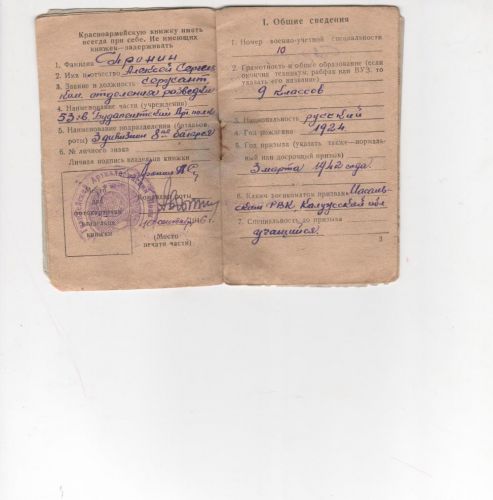 Красноармейскую книжку иметь
всегда при себе. Не имеющих
книжек—задерживать
1. Фамилия
2. Имя и отчество Алексей Сергее
3. Звание и должность сержант
ком. отделения разведки
4. Наименование части (учреждения)
53 гв. Будапештский Арт. полк
5. Наименование подразделения (батальон,
роты) 3 дивизион 8ая батарея
6. № личного знака
Личная подпись владельца книжки
Место
для
фотокарточки
владельца
книжки
Командир роты
1946 г.
(Место
печати части)
1. Общие сведения
1. Номер военно-учетной специальности
10
2. Грамотность и общее образование (если
окончил техникум, рабфак или ВУЗ, то
указать его название)
9 классов
3. Национальность русский
4. Год рождения 1924.
5. Год призыва (указать также—нормаль-
ный или досрочный призыв)
3 марта 1942 года.
6. Каким военкоматом призван
РВК Калужской обл
7. Специальность до призыва
учащийся.
3